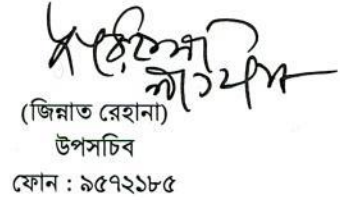 (জিন্নাত রেহানা)
উপসচিব
ফোন : ৯৫৭২১৮৫